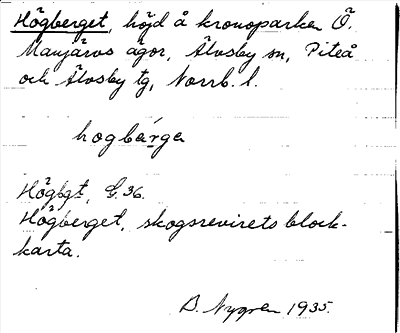 Högberget, höjd å kronoparken Ö.
Manjärvs ägor, Älvsby sn, Piteå
och Älvsby tg, Norrb. l.
hogbärga
Högbgt, G. 36.
Högberget, skogsrevirets block-
karta.
B. Nygren 1935.